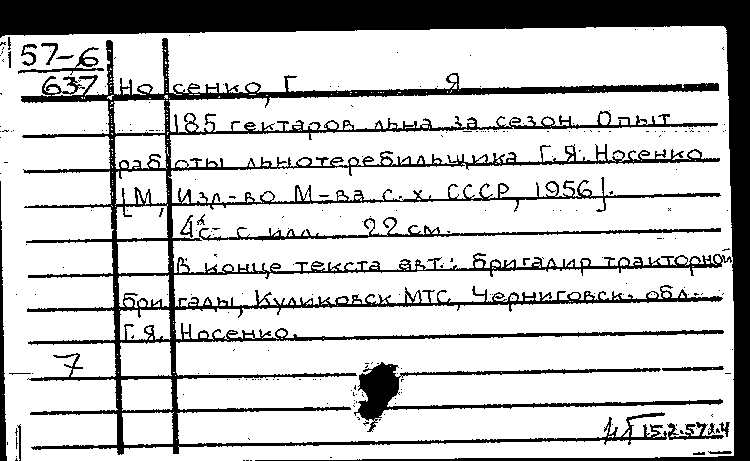 57-6
637 Носенко, Г. Я
185 гектаров льна за сезон. Опыт
работы льнотеребильщика Г.Я. Носенко
[М, Изд-во М-ва с. х. СССР, 1956].
4 с. с илл. 22 см.
В конце текста авт.: бригадир тракторной
бригады, Куликовск МТС, Черниговск. обл.
Г.Я. Носенко.
7
15.2.57г.